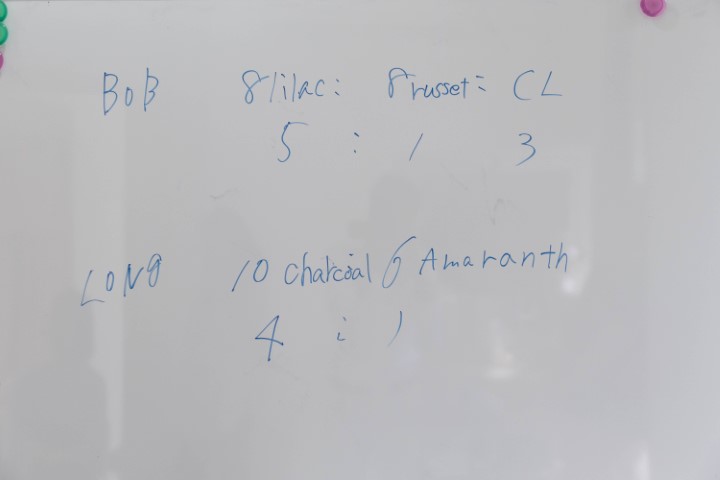 BOB 8lilac: 8russet: CL
5 : 1 3
LONG 10 charcoal 6 Amaranth
4 : 1